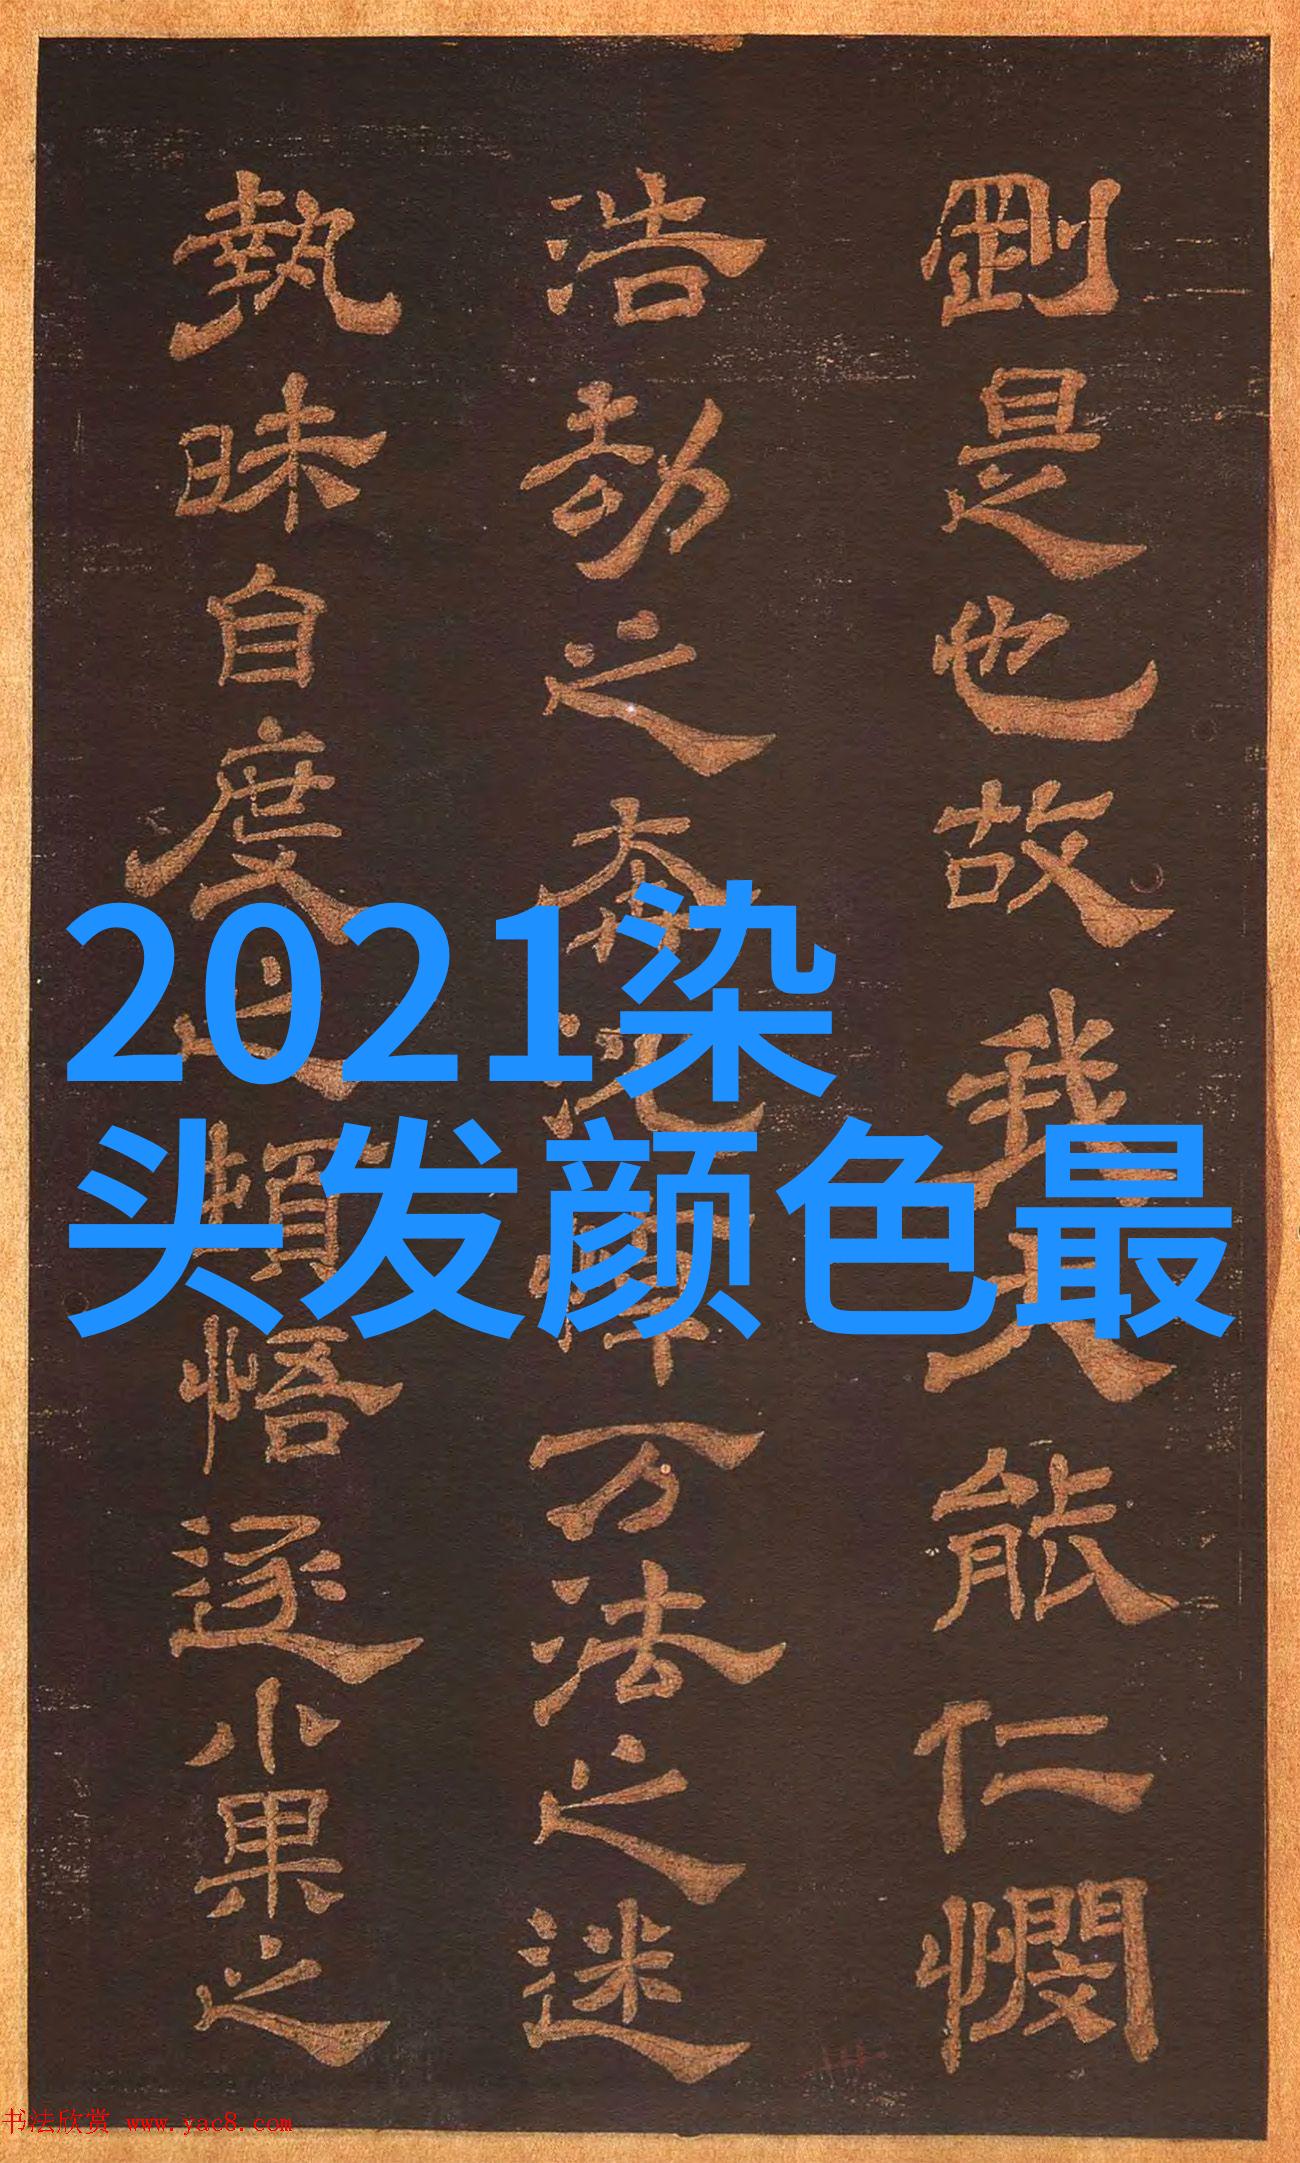 剛是也故我大能仁憫
浩劫之万法之迷
執昧自度之頓悟逐小果之
2021染
头发颜色最
书法欣赏 www.yac8.com